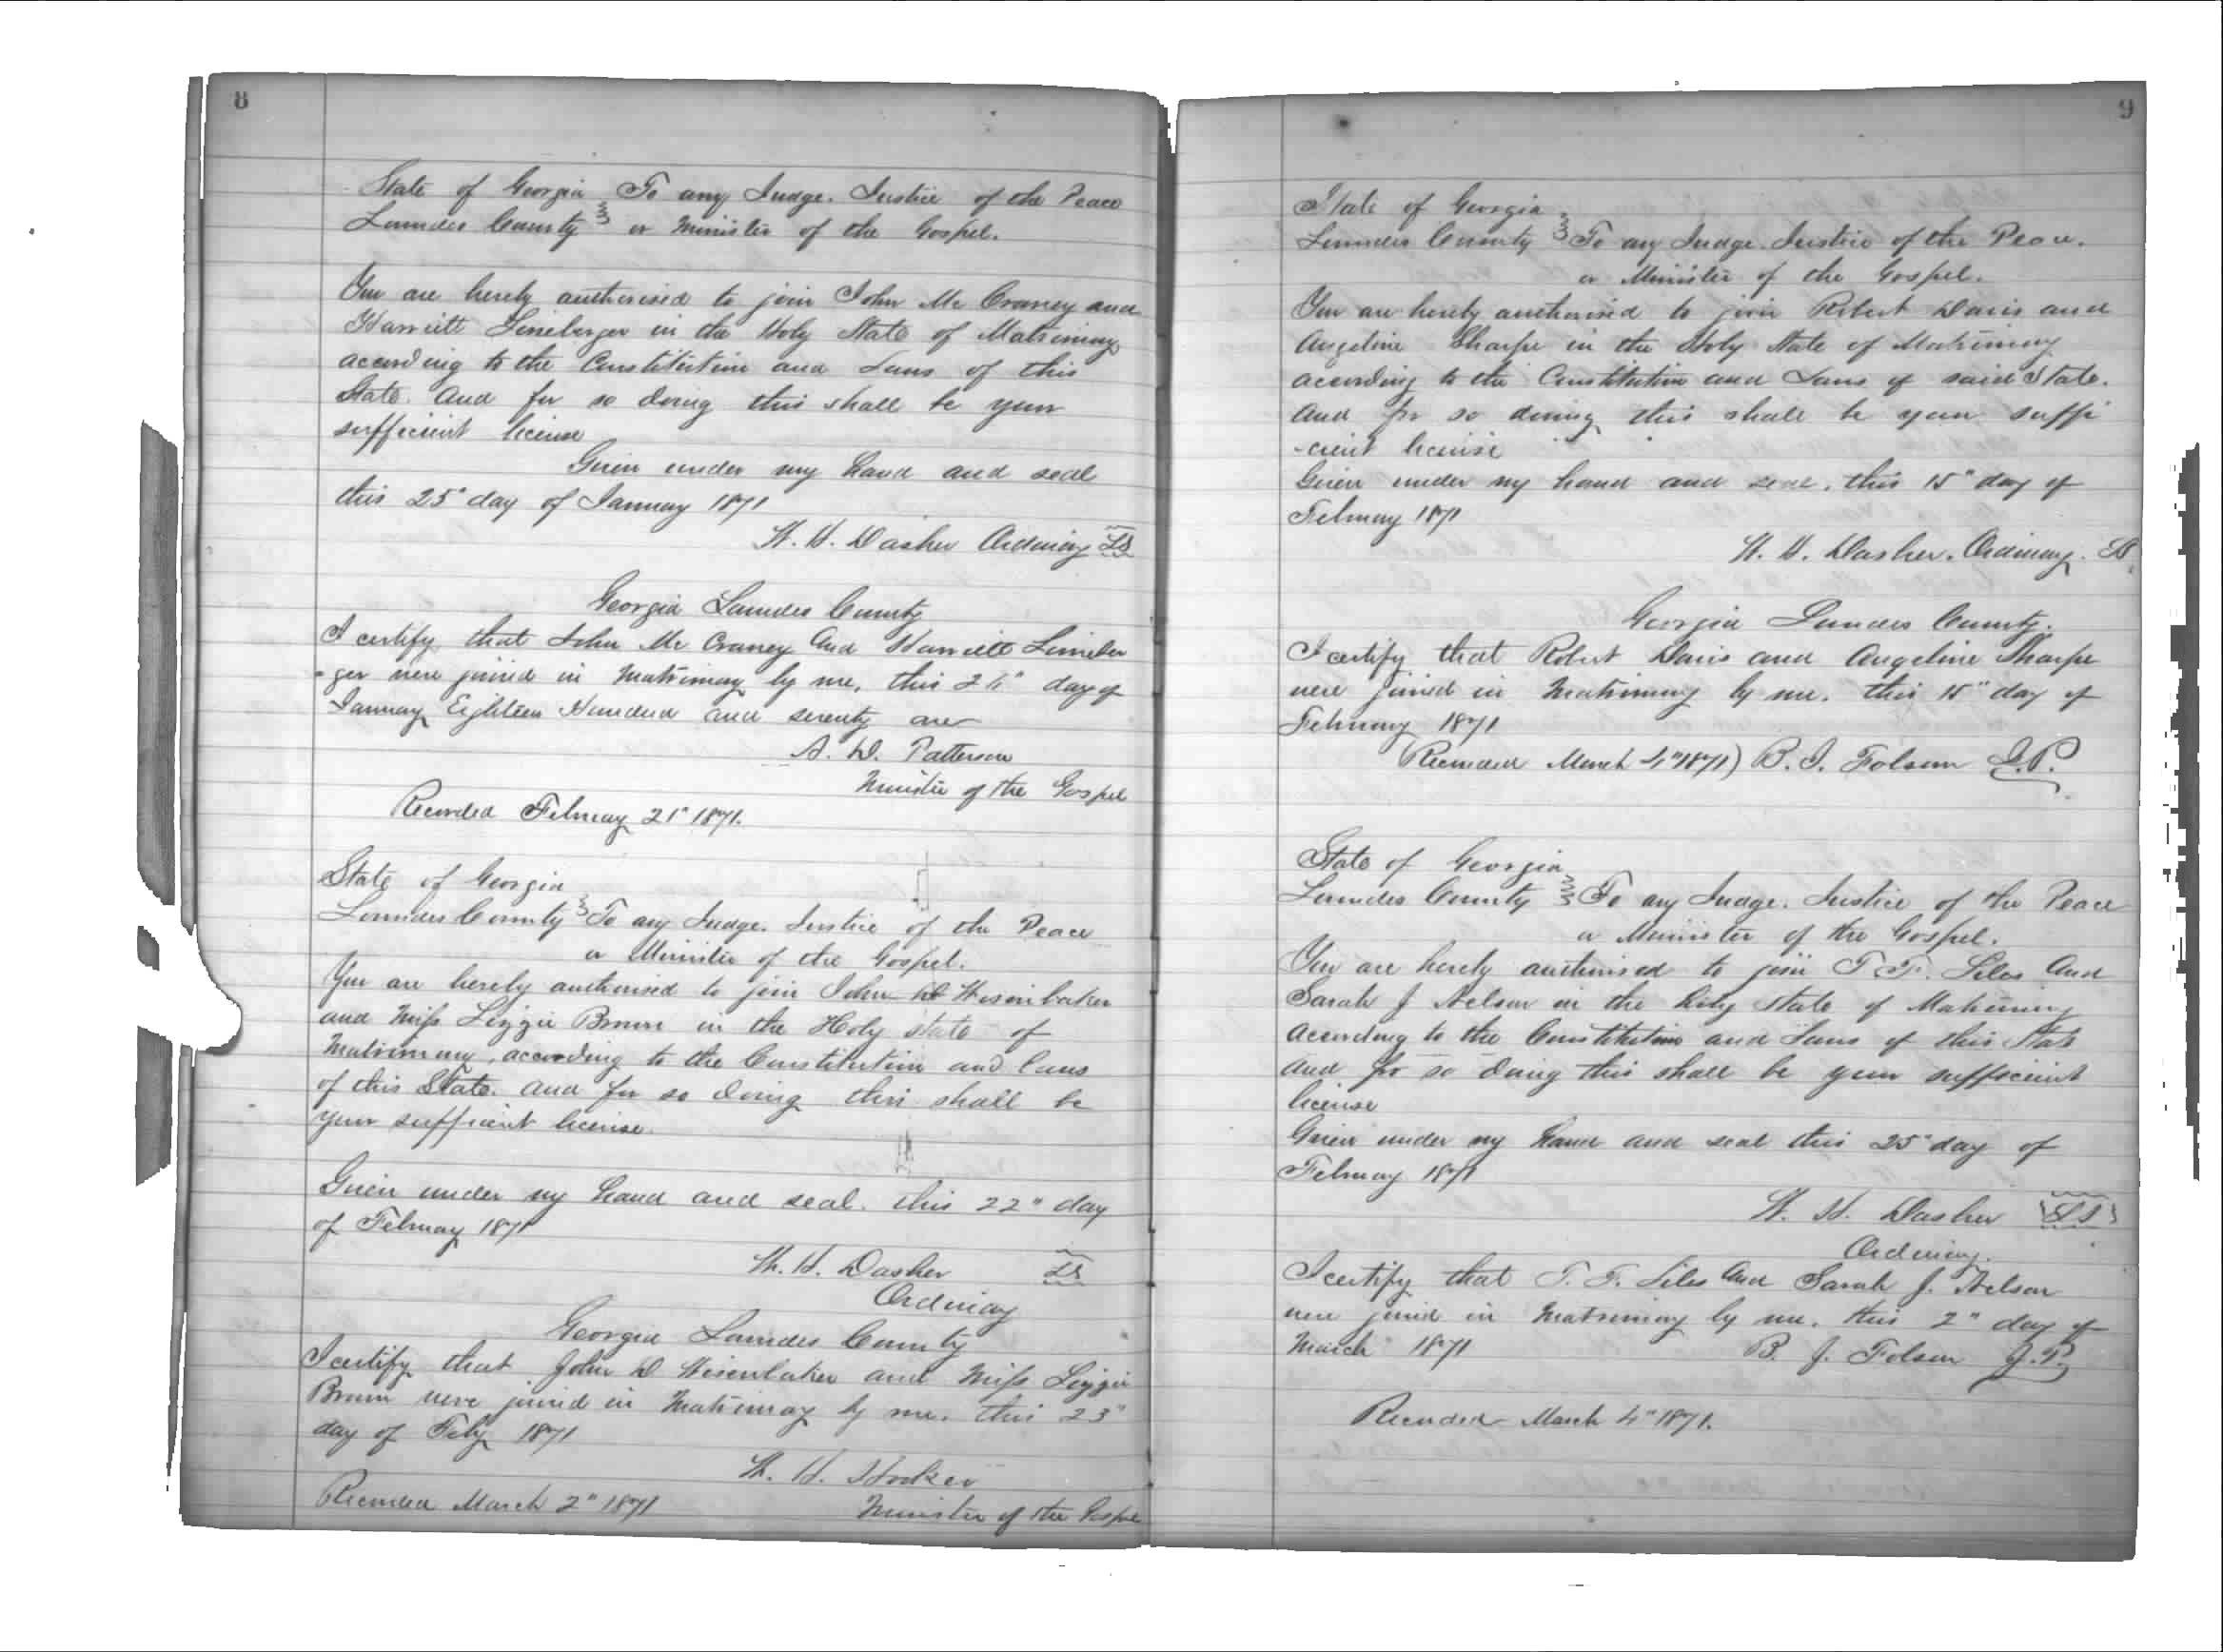 8
State of Georgia To any Judge. Justice of the Peace
Lowndes County or Minister of the Gospel.
You are hereby authorised to join John Mc Craney and
Harriett Lineberger in the Holy State of Matrimony
according to the Constitution and Laws of this
State. And for so doing this shall be your
sufficient license
Given under my hand and seal
this 25" day of January 1871
W. H. Dasher Ordinary LS
Georgia Lowndes County
I certify that John Mc Craney And Harriett Lineber
-ger were joined in Matrimony by me, this day of
January Eighteen Hundred and seventy one
A. W. Patterson
Minister of the Gospel
Recorded February 21" 1871.
State of Georgia
Lowndes County To any Judge. Justice of the Peace
or Minister of the Gospel.
You are hereby authorised to join John D Wisenbaker
and Miss Lizzie Brown in the Holy State of
Matrimony, according to the Constitution and laws
of this State. and for so doing this shall be
your sufficient license.
Given under my hand and seal. this 22" day
of February 1871
W. H. Dasher LS
Ordinary
Georgia Lowndes County
I certify that John D Wisenbaker and Miss Lizzie
Brown were joined in Matrimony by me. this 23"
day of Feby 1871
W. H.
Recorded March 2" 1871 Minister of the Gospel
9
State of Georgia
Lowndes County To any Judge. Justice of the Peace.
or Minister of the Gospel.
You are hereby authorised to join Robert Davis and
Angeline Sharpe in the Holy State of Matrimony
according to the Constitution and Laws of said State.
And for so doing this shall be your suffi
-cient license
Given under my hand and seal. this 15" day of
February 1871
W. H. Dasher. Ordinary. LS
Georgia Lowndes County.
I certify that Robert Davis and Angeline Sharpe
were joined in Matrimony by me. this 15" day of
February 1871
Recorded March 4" 1871) B. J. Folsom J.P.
State of Georgia
Lowndes County To any Judge. Justice of the Peace
or Minister of the Gospel.
You are hereby authorised to join T. F. Liles And
Sarah J Nelson in the Holy State of Matrimony
According to the Constitution and Laws of this State
And for so doing this shall be your sufficient
license
Given under my hand and seal this 25" day of
February 1871
W. H. Dasher LS
Ordinary.
I certify that T. F. Liles And Sarah J. Nelson
were joined in Matrimony by me. this 2" day of
March 1871 B. J. Folsom J.P.
Recorded March 4" 1871.